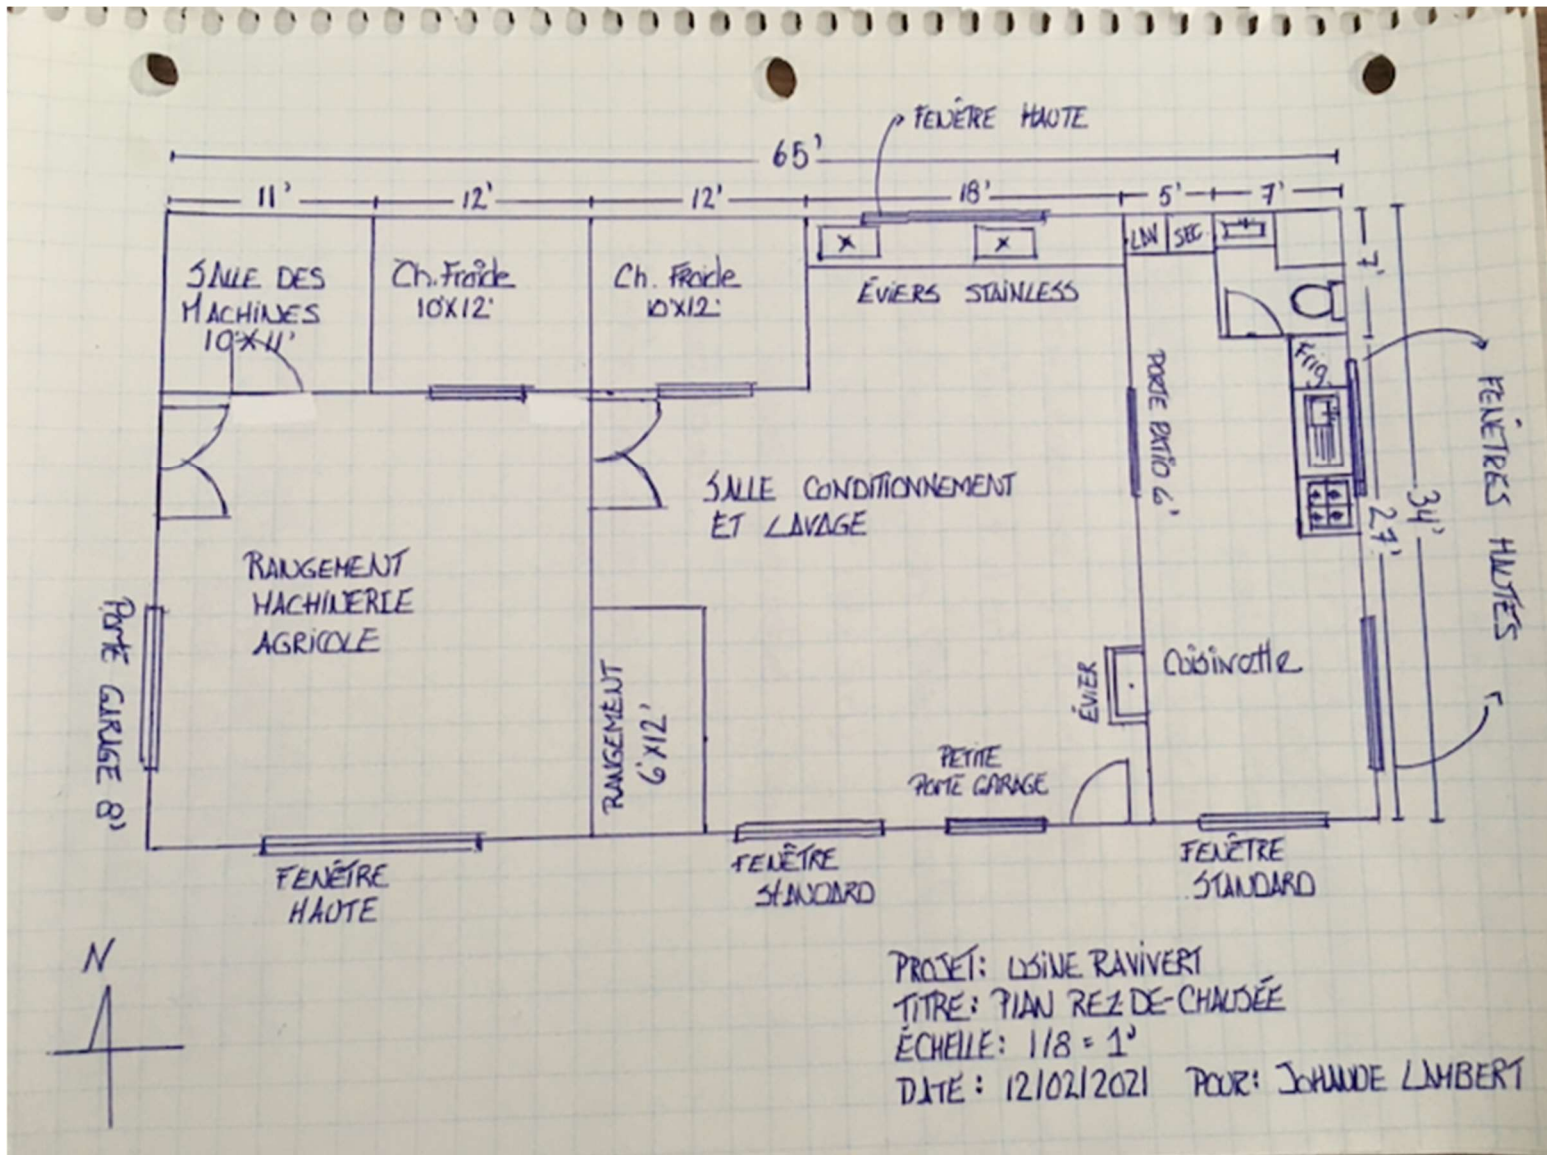 FENÊTRE HAUTE
65'
11' 12' 12' 18' 5' 7'
SALLE DES
MACHINES
10'X11'
Ch. Froide
10'X12'
Ch. Froide
10X12'
ÉVIERS STAINLESS
LAV SEC
7'
frig
PORTE PATIO 6'
FENÊTRES HAUTES
34'
27'
SALLE CONDITIONNEMENT
ET LAVAGE
RANGEMENT
MACHINERIE
AGRICOLE
PORTE GARAGE 8'
RANGEMENT
6'X12'
ÉVIER
Cuisinette
PETITE
PORTE GARAGE
FENÊTRE
HAUTE
FENÊTRE
STANDARD
FENÊTRE
STANDARD
N
PROJET: USINE RAVIVERT
TITRE: PLAN REZ-DE-CHAUSÉE
ÉCHELLE: 1/8 = 1'
DATE: 12/02/2021 POUR: JOHANDE LAMBERT